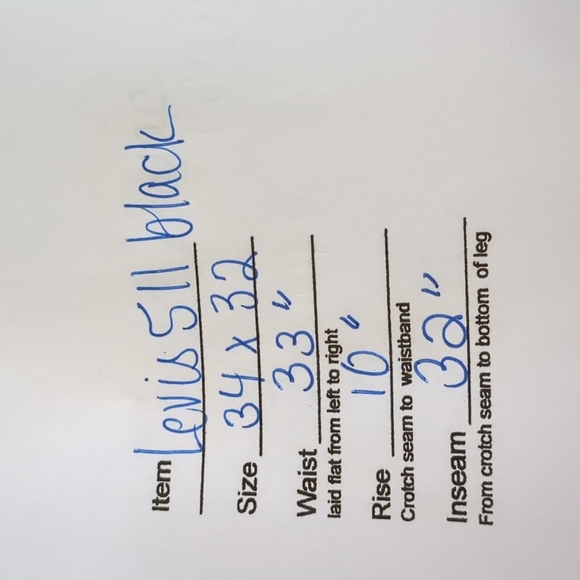 Item Levis 511 black
Size 34 x 32
Waist 33"
laid flat from left to right
Rise 10"
Crotch seam to waistband
Inseam 32"
From crotch seam to bottom of leg